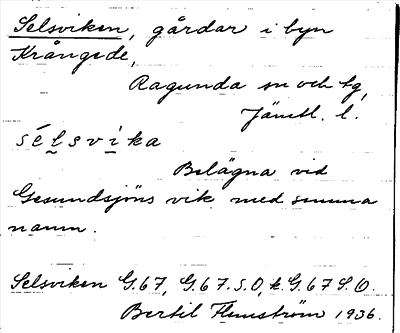 Selsviken, gårdar i byn
Krångede,
Ragunda sn och tg,
Jämtl. l.
sélsvìka
Belägna vid
Gesundsjöns vik med samma
namn.
Selsviken G.67, G.67.S.O, k. G.67 S.O.
Bertil Flemström 1936.